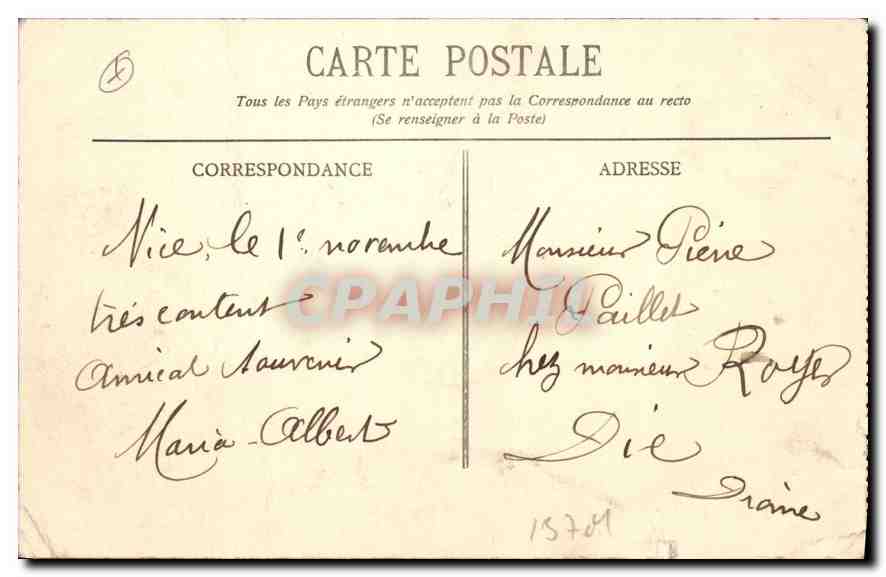 CARTE POSTALE
Tous les Pays étrangers n'acceptent pas la Correspondance au recto
(Se renseigner à la Poste)
CORRESPONDANCE
Nice, le 1er novembre
très contents
Amical Souvenir
Maria-Albert
ADRESSE
Monsieur Pierre
Paillet
chez monsieur Royer
Die
Drôme
CPAPHIL